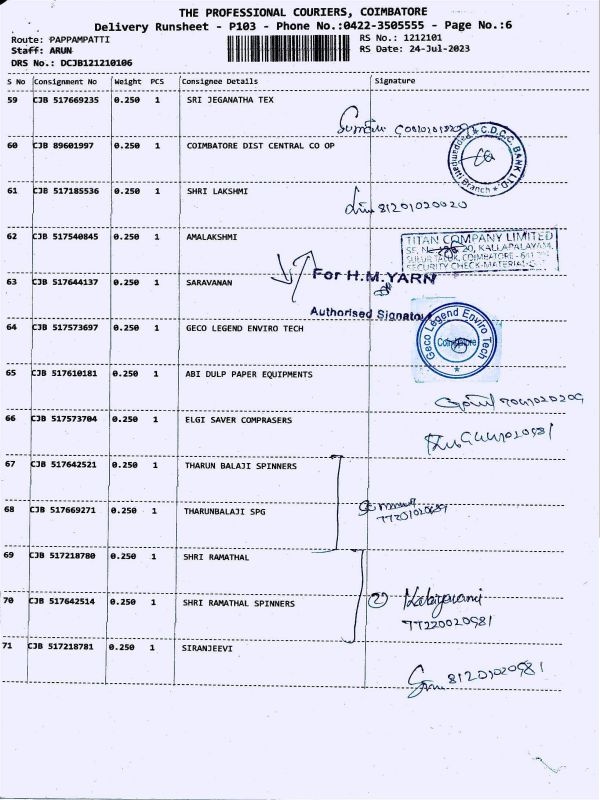 THE PROFESSIONAL COURIERS, COIMBATORE
Delivery Runsheet - P103 - Phone No.:0422-3505555 - Page No.:6
Route: PAPPAMPATTI RS No.: 1212101
Staff: ARUN RS Date: 24-Jul-2023
DRS No.: DCJB121210106
S No Consignment No Weight PCS Consignee Details Signature
59 CJB 517669235 0.250 1 SRI JEGANATHA TEX
60 CJB 89601997 0.250 1 COIMBATORE DIST CENTRAL CO OP
C.D.C.C. BANK LTD.
Branch
61 CJB 517185536 0.250 1 SHRI LAKSHMI
81201020020
62 CJB 517540845 0.250 1 AMALAKSHMI
TITAN COMPANY LIMITED
KALLAPALAYAM,
COIMBATORE
SECURITY CHECK-MATERIAL
63 CJB 517644137 0.250 1 SARAVANAN
For H.M.YARN
Authorised Signatory
64 CJB 517573697 0.250 1 GECO LEGEND ENVIRO TECH
Geco Legend Enviro Tech
Coimbatore
65 CJB 517610181 0.250 1 ABI DULP PAPER EQUIPMENTS
66 CJB 517573704 0.250 1 ELGI SAVER COMPRASERS
67 CJB 517642521 0.250 1 THARUN BALAJI SPINNERS
68 CJB 517669271 0.250 1 THARUNBALAJI SPG
69 CJB 517218780 0.250 1 SHRI RAMATHAL
70 CJB 517642514 0.250 1 SHRI RAMATHAL SPINNERS
2
77220020981
71 CJB 517218781 0.250 1 SIRANJEEVI
81201020981